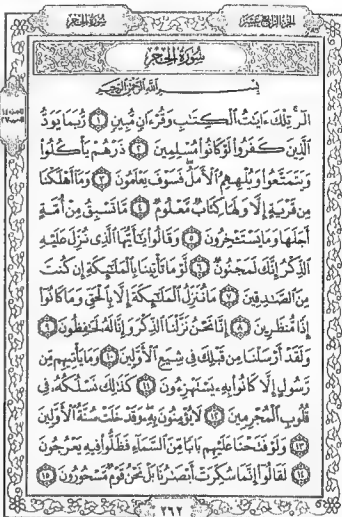 الجزء الرابع عشر
سورة الحجر
سُورَةُ الحِجْرِ
بِسْمِ اللَّهِ الرَّحْمَٰنِ الرَّحِيمِ
الٓرۚ تِلْكَ ءَايَٰتُ ٱلْكِتَٰبِ وَقُرْءَانٍ مُّبِينٍ ١ رُّبَمَا يَوَدُّ
ٱلَّذِينَ كَفَرُوا۟ لَوْ كَانُوا۟ مُسْلِمِينَ ٢ ذَرْهُمْ يَأْكُلُوا۟
وَيَتَمَتَّعُوا۟ وَيُلْهِهِمُ ٱلْأَمَلُ ۖ فَسَوْفَ يَعْلَمُونَ ٣ وَمَآ أَهْلَكْنَا
مِن قَرْيَةٍ إِلَّا وَلَهَا كِتَابٌ مَّعْلُومٌ ٤ مَّا تَسْبِقُ مِنْ أُمَّةٍ
أَجَلَهَا وَمَا يَسْتَـْٔخِرُونَ ٥ وَقَالُوا۟ يَٰٓأَيُّهَا ٱلَّذِى نُزِّلَ عَلَيْهِ
ٱلذِّكْرُ إِنَّكَ لَمَجْنُونٌ ٦ لَّوْ مَا تَأْتِينَا بِٱلْمَلَٰٓئِكَةِ إِن كُنتَ
مِنَ ٱلصَّٰدِقِينَ ٧ مَا نُنَزِّلُ ٱلْمَلَٰٓئِكَةَ إِلَّا بِٱلْحَقِّ وَمَا كَانُوٓا۟
إِذًا مُّنظَرِينَ ٨ إِنَّا نَحْنُ نَزَّلْنَا ٱلذِّكْرَ وَإِنَّا لَهُۥ لَحَٰفِظُونَ ٩
وَلَقَدْ أَرْسَلْنَا مِن قَبْلِكَ فِى شِيَعِ ٱلْأَوَّلِينَ ١٠ وَمَا يَأْتِيهِم مِّن
رَّسُولٍ إِلَّا كَانُوا۟ بِهِۦ يَسْتَهْزِءُونَ ١١ كَذَٰلِكَ نَسْلُكُهُۥ فِى
قُلُوبِ ٱلْمُجْرِمِينَ ١٢ لَا يُؤْمِنُونَ بِهِۦ ۖ وَقَدْ خَلَتْ سُنَّةُ ٱلْأَوَّلِينَ
١٣ وَلَوْ فَتَحْنَا عَلَيْهِم بَابًا مِّنَ ٱلسَّمَآءِ فَظَلُّوا۟ فِيهِ يَعْرُجُونَ
١٤ لَقَالُوٓا۟ إِنَّمَا سُكِّرَتْ أَبْصَٰرُنَا بَلْ نَحْنُ قَوْمٌ مَّسْحُورُونَ ١٥
٢٦٢